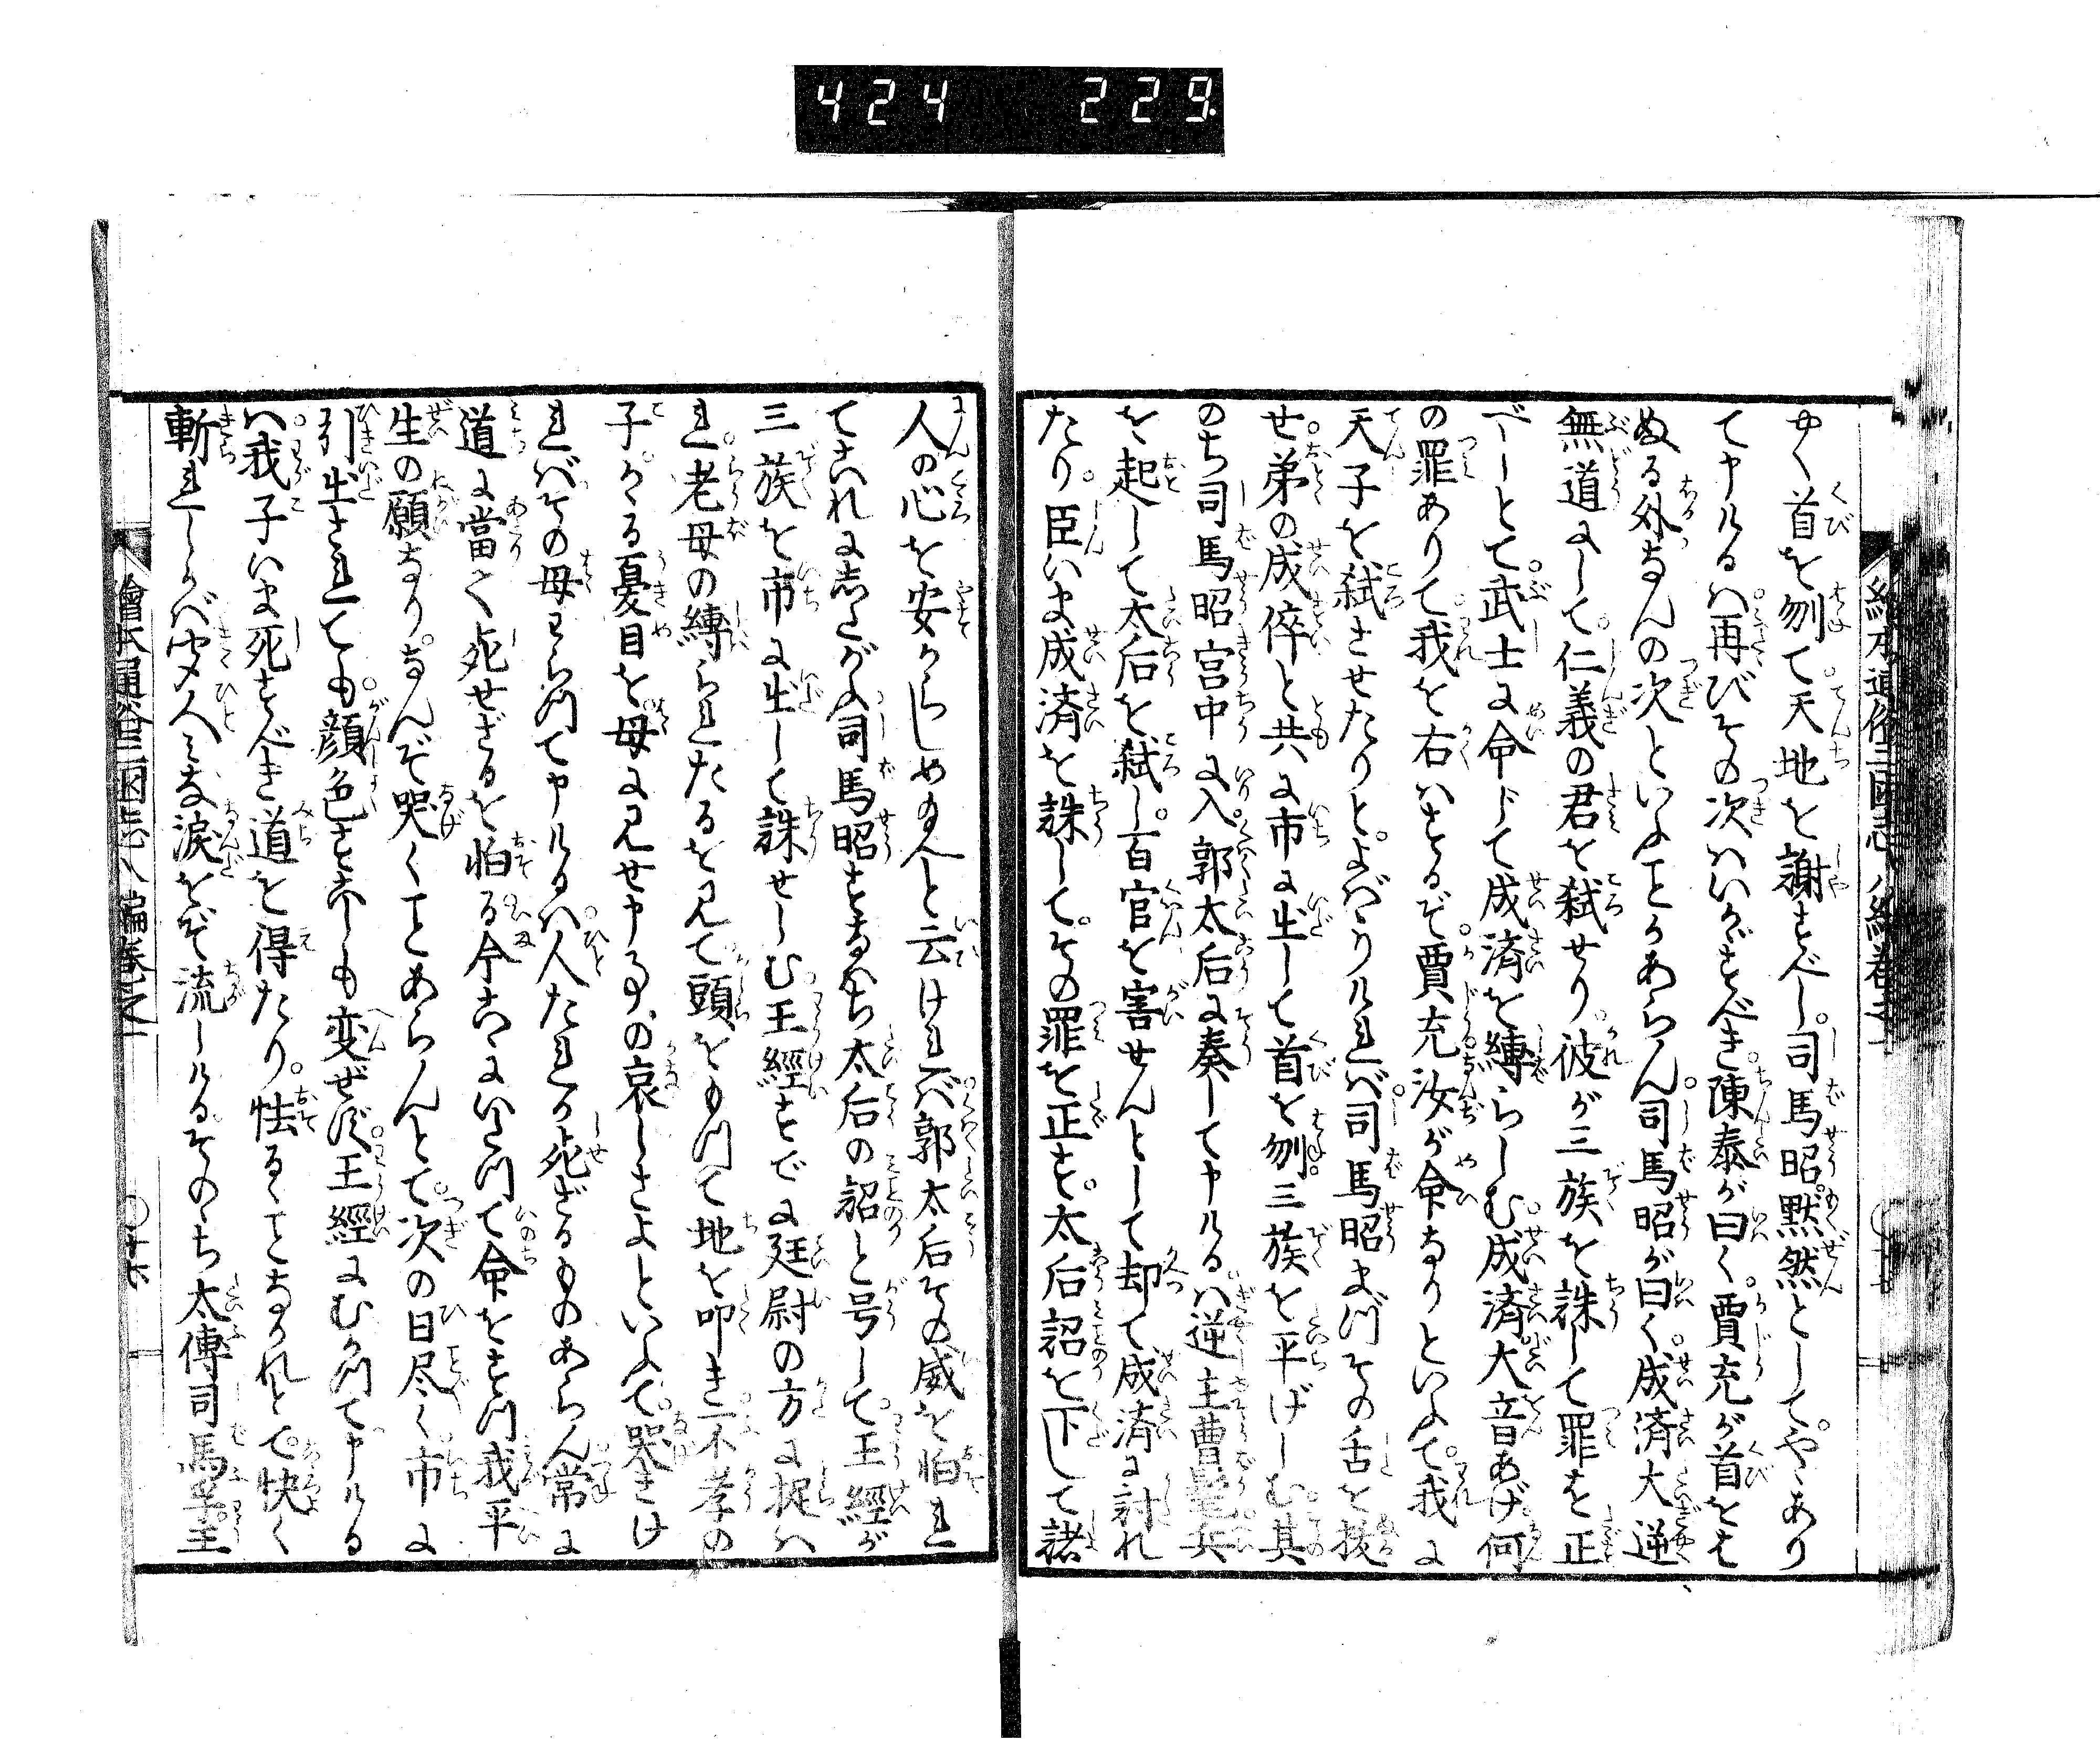 424 229
やく首を刎て天地を謝すべし。司馬昭。默然として。やゝあり
て申けるは。再びその次はいかゞすべき。陳泰が曰く。賈充が首をは
ぬる外なんの次といふことかあらん。司馬昭が曰く。成済大逆
無道にして。仁義の君を弑せり。彼が三族を誅して罪を正
べしとて。武士に命じて成済を縛らしむ。成済大音あげ何
の罪ありて。我を右はするぞ。賈充汝が命なりといふて。我に
天子を弑させたりと。よばゝりければ。司馬昭まづその舌を抜
せ。弟の成倅と共に市に出して首を刎。三族を平げしむ。其
のち司馬昭宮中に入。郭太后に奏して申けるは。逆主曹髦兵
を起して太后を弑し。百官を害せんとして却て成済に討れ
たり。臣いま成済を誅して。その罪を正す。太后詔を下して諸
人の心を安からしめ玉へと云ければ。郭太后その威を怕れ
てこれにしたがふ。司馬昭すなはち太后の詔と号して。王經が
三族を市に出して誅せしむ。王經すでに廷尉の方に捉は
れ。老母の縛られたるを見て。頭をもつて地を叩き。不孝の
子。かゝる憂目を母に見せ申事の哀しさよといふて。哭きけ
れば。その母わらつて申けるは。人たれか死ざるものあらん。常に
道に當て死せざるを怕る。今こゝにいたつて命をすつ。我平
生の願なり。なんぞ哭くことあらんとて。次の日尽く市に
引出されても。顔色すこしも変ぜず。王經にむかつて申ける
は。我子いま死すべき道を得たり。怯るゝことなかれとて。快く
斬れしかば。聞人みな涙をぞ流しける。そのゝち太傅司馬孚。王
繪本通俗三國志八編巻之一
十六